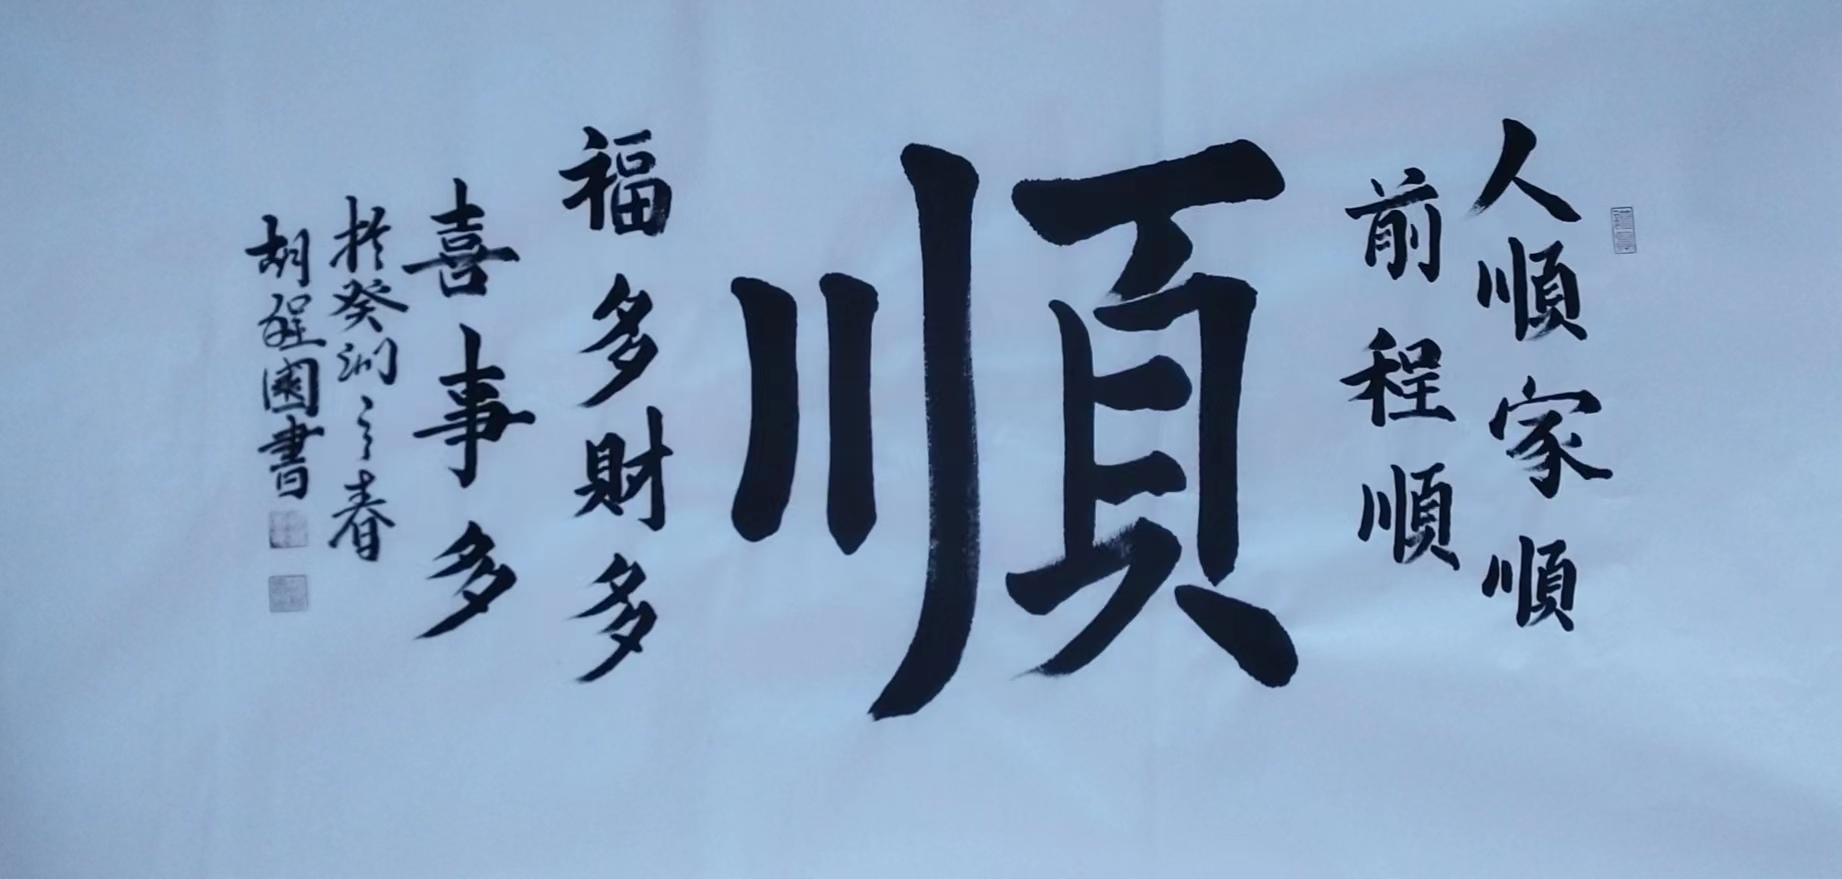 人順家順
前程順
順
福多財多
喜事多
於癸卯之春
胡程國書